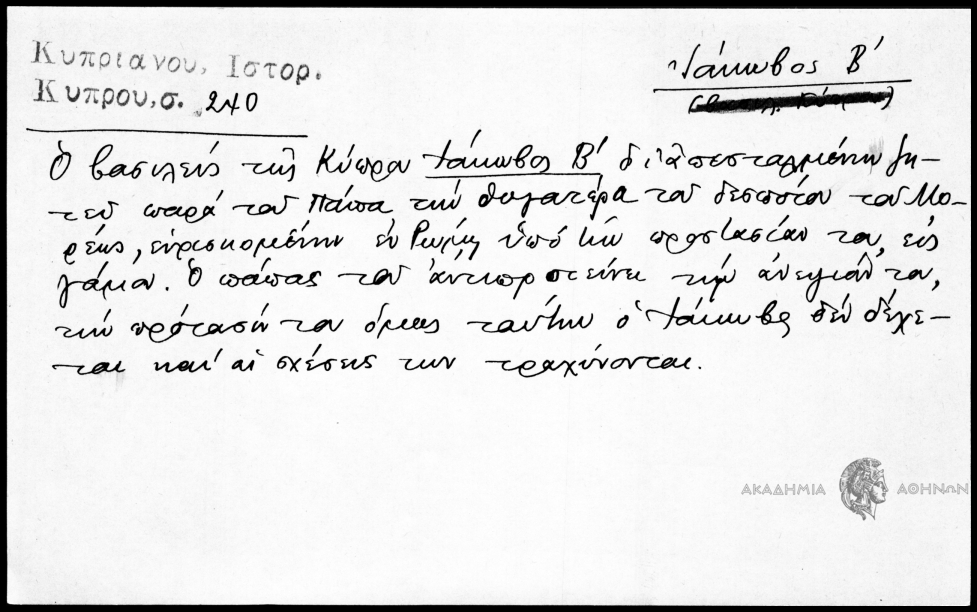 Κυπριανου, Ιστορ.
Κυπρου, σ. 240
Ἰάκωβος Β΄
Ὁ βασιλεύς τῆς Κύπρου Ἰάκωβος Β΄ δι' ἀπεσταλμένων ζη-
τεῖ παρά τοῦ Πάπα τήν θυγατέρα τοῦ δεσπότου τοῦ Μο-
ρέως, εὑρισκομένην ἐν Ρώμῃ ὑπό τήν προστασίαν του, εἰς
γάμον. Ὁ πάπας τοῦ ἀντιπροτείνει τήν ἀνεψιάν του,
τήν πρότασίν του ὅμως ταύτην ὁ Ἰάκωβος δέν δέχε-
ται καί αἱ σχέσεις των τραχύνονται.
ΑΚΑΔΗΜΙΑ ΑΘΗΝΩΝ